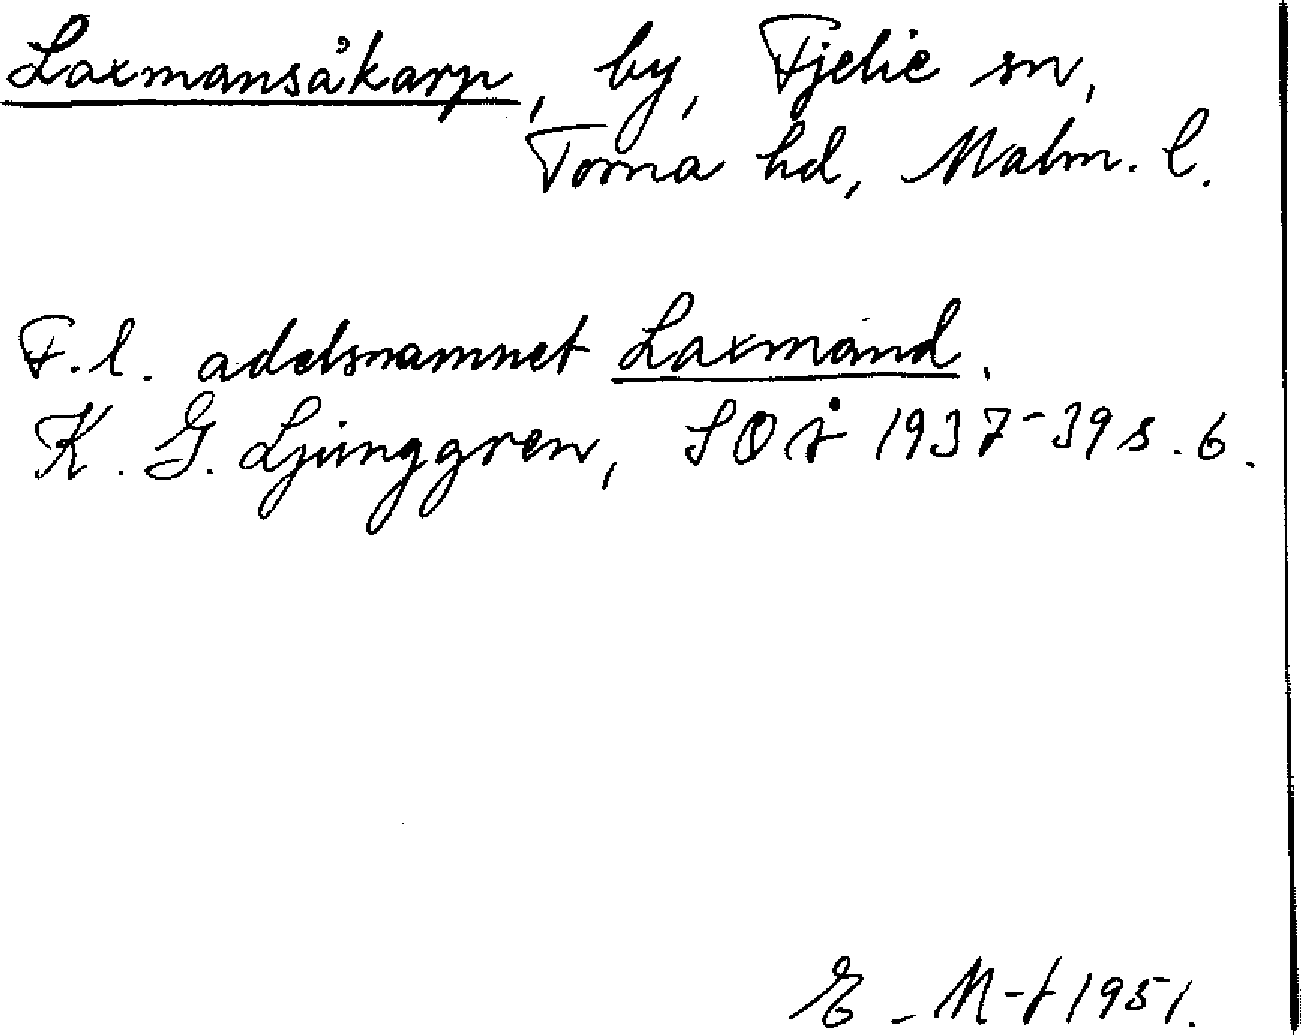 Laxmansåkarp, by, Fjelie sn,
Torna hd, Malm. l.
F.l. adelsnamnet Laxmand.
K. G. Ljunggren, SOÅ 1937-39 s. 6.
E. M-t 1951.